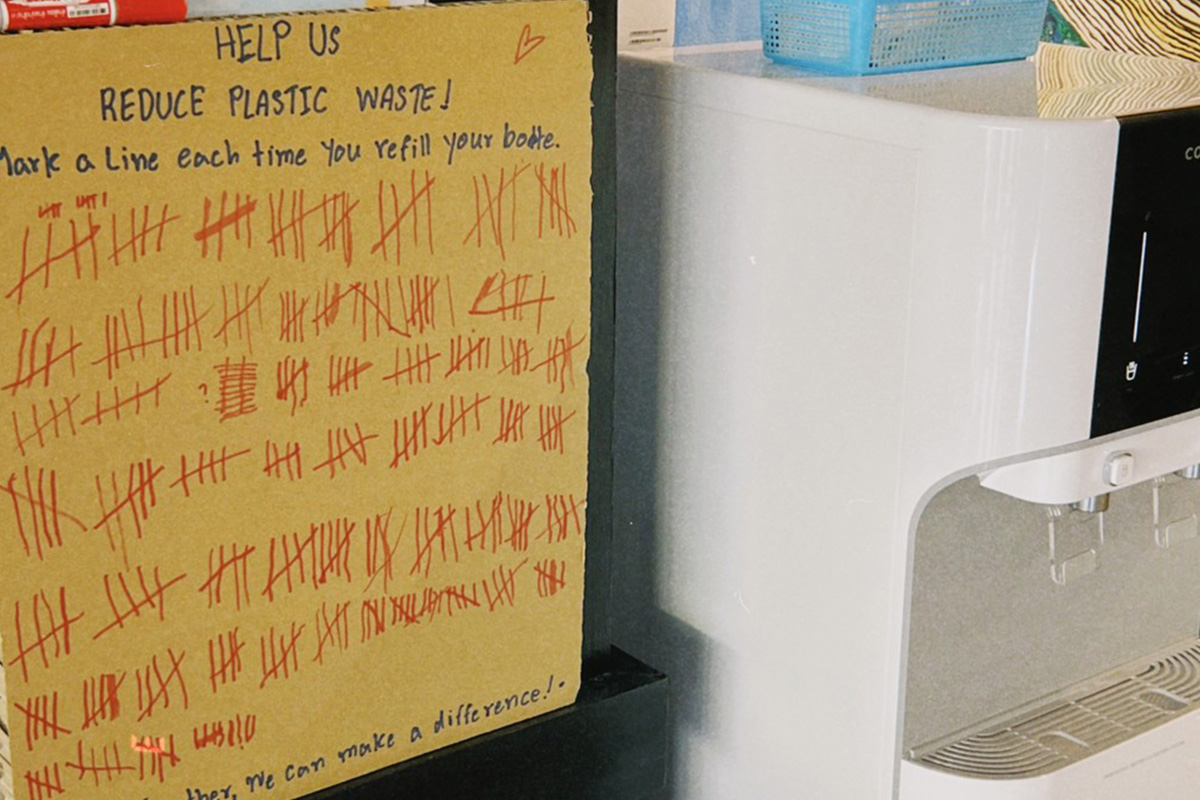 HELP US
REDUCE PLASTIC WASTE!
Mark a Line each time you refill your bottle.
We can make a difference!